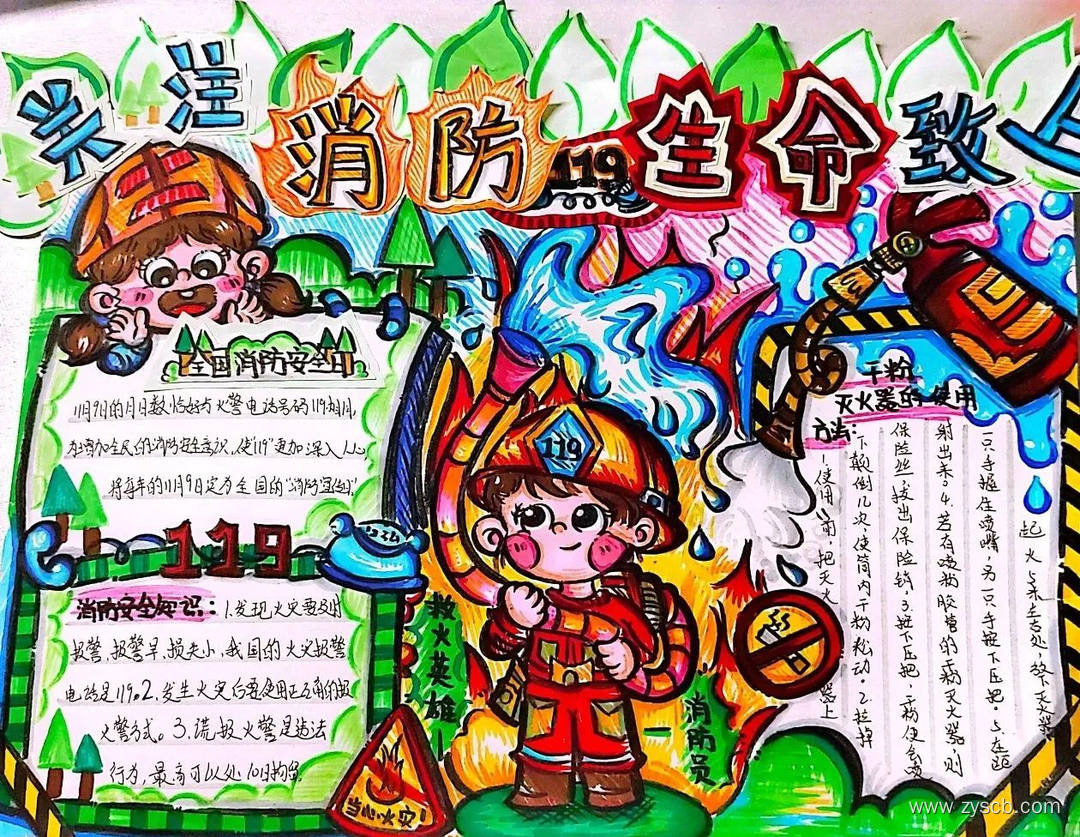 关注消防生命致上
119
全国消防安全日
11月9日的月日数恰好与火警电话号码119相同,
在增加全民的消防安全意识,使"119"更加深入人心
将每年的11月9日定为全国的"消防宣传日"
119
消防安全知识:1.发现火灾要及时
报警,报警早,损失小,我国的火灾报警
电话是119。2.发生火灾后要使用正确的报
火警方式。3.谎报火警是违法
行为,最高可以处10日拘留
119
救火英雄—
—消防员
当心火灾!
干粉
灭火器的使用
方法:
1.使用前,把灭火器上
下颠倒几次,使筒内干粉松动。2.拉掉
保险丝,拔出保险销,3.按下压把,干粉便会喷
射出来。4.若有喷粉胶管的干粉灭火器,则
一只手握住喷嘴,另一只手按下压把。5.在距
起火5米左右处,放下灭火器
www.zyscb.com